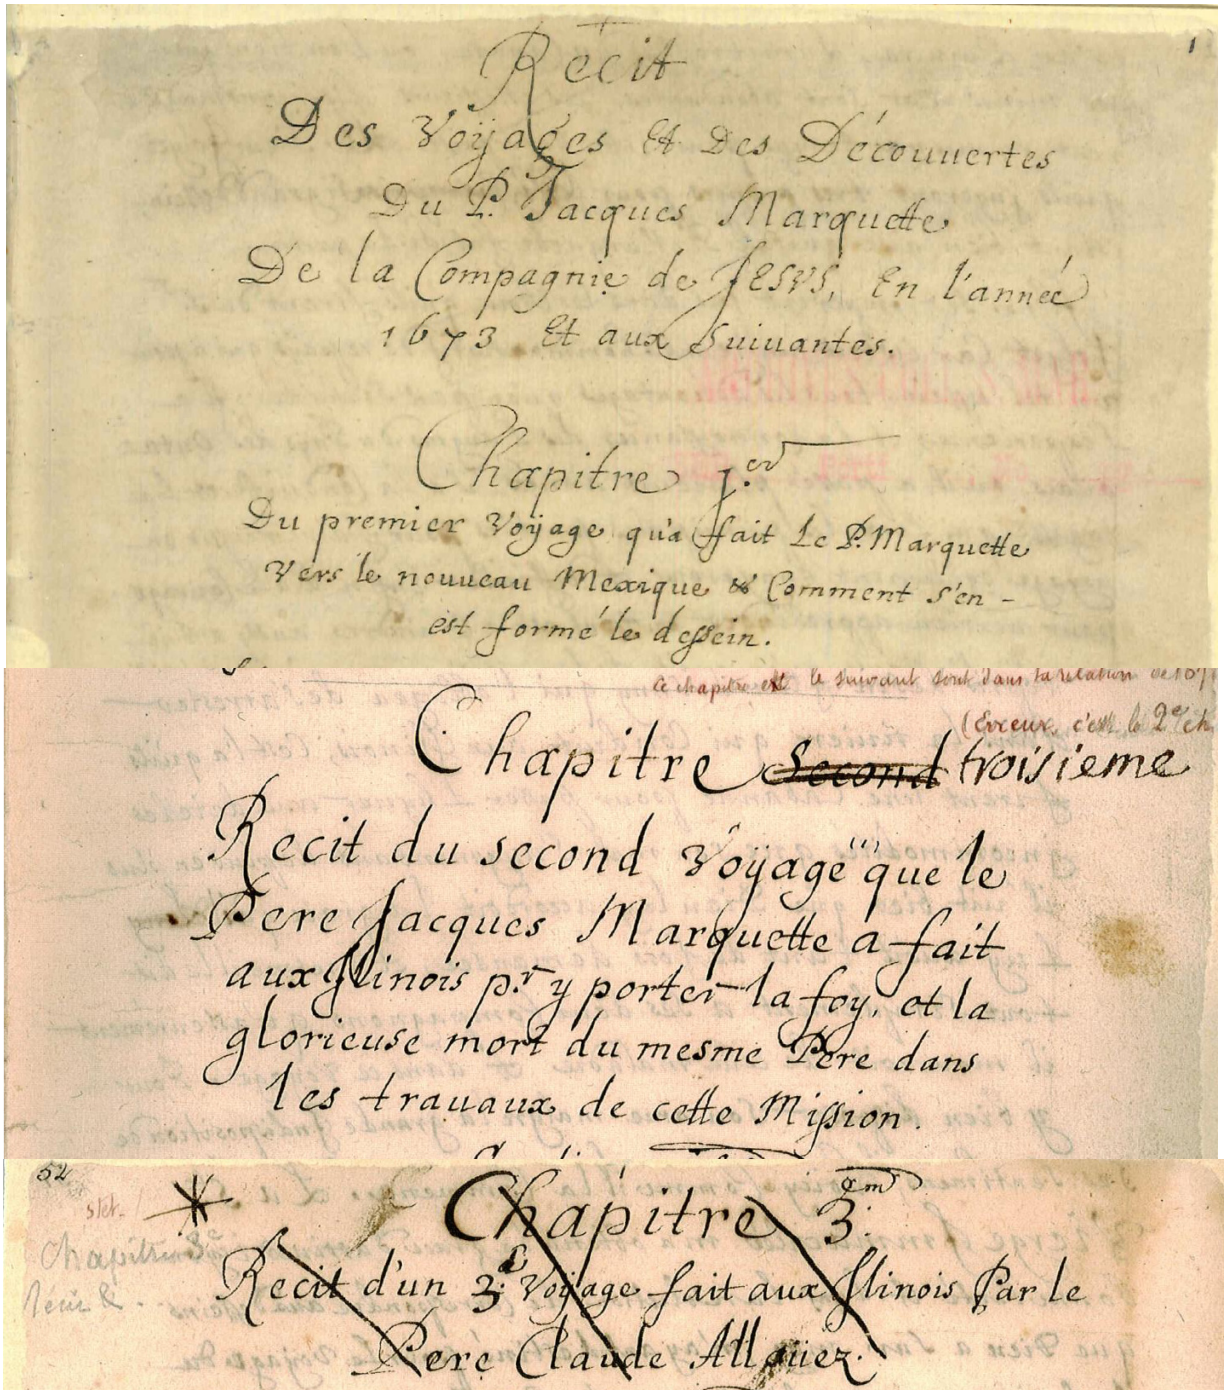 1
Récit
Des Voÿages Et Des Découuertes
Du P. Jacques Marquette
De la Compagnie de JESVS, En l'année
1673 Et aux Suiuantes.
Chapitre 1.er
Du premier Voÿage qu'a fait Le P. Marquette
Vers le nouueau Mexique & Comment s'en -
est formé le dessein.
Ce chapitre et le suivant sont dans la relation de
(Erreur, c'est le 2e ch
Chapitre Second troisieme
Recit du second Voÿage que le
Pere Jacques Marquette a fait
aux Ilinois pr. y porter la foy, et la
glorieuse mort du mesme Pere dans
les trauaux de cette Mission.
52
stet.
Chapitre 3.em
Chapitre 3e
Recit d'un 3.e Voÿage fait aux Ilinois Par le
Récit &.
Pere Claude Alloüez.